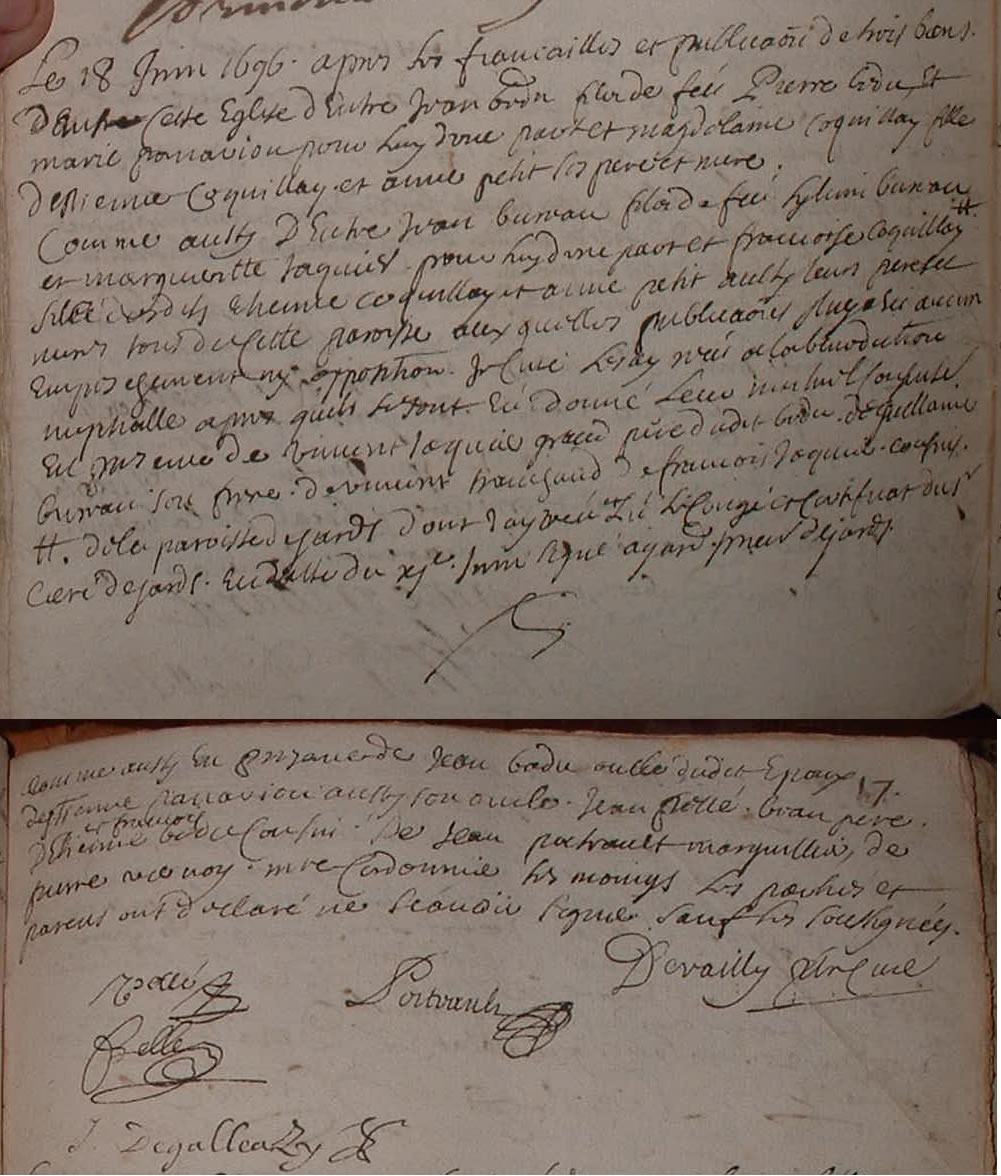 Le 18 Juin 1696. apres les fiancailles et publicaõn de trois bans.
Cette Eglise d'Entre Jean Bodu fils de feu Pierre Bodu et
marie panavion pour luy d'vne part et magdelaine Coquillay fille
d'estienne Coquillay et anne petit ses pere et mere,
Comme aussy D'Entre Jean bureau fils de feu bureau
et margueritte Jaquies pour luy d'vne part et francoise Coquillay #
fille desdits Etienne Coquillay et anne petit aussy leurs pere et
meres tous de Cette paroisse aux quelles publicaõns Il n'y a eu aucun
ny opposition. Je Curé la benediction
nuptialle apres quils se sont donné leur mutuel
En presence de vincent Jaquie pere dudit bodu. de guillaume
bureau son frere. de vincent de francois Jaquie cousins.
#. de la paroisse de Jards dont J'ay veu et Lu le Congé et Certificat du Sr
Curé de Jards. En datte du xje. Juin signé ayard prieur de Jards.
Comme aussy En presence de Jean bodu oncle dudit Epoux 17.
d'estienne panavion aussy son oncle. Jean pellé. beau pere.
et francois
D'Etienne bodu Cousin. De Jean portrault marguillier, de
pierre mre Cordonnie les temoings les parties et
parens ont declaré ne scavoir signer sauf les soussignéz.
Devailly Curé
Portrault
pellé
J. Degalleazy